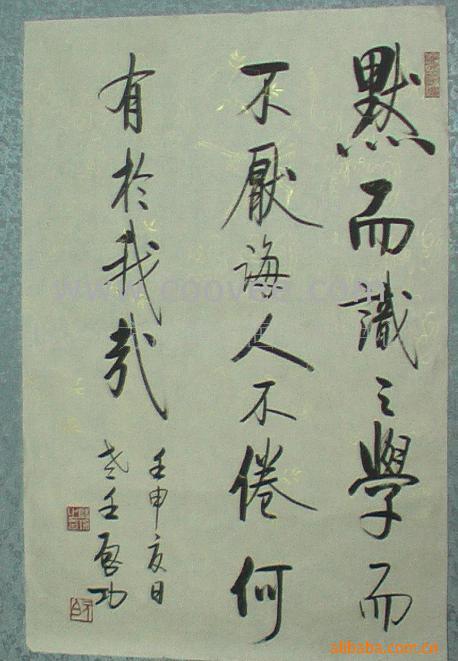 默而識之學而
不厭誨人不倦何
有於我哉
壬申夏日
启功
alibaba.com.cn